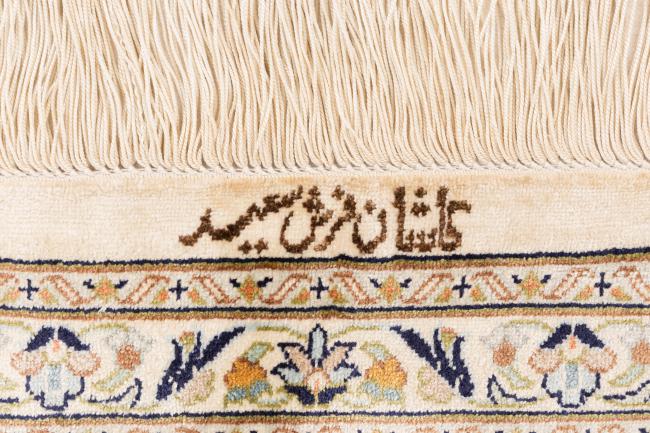 کاشان فرش سعید